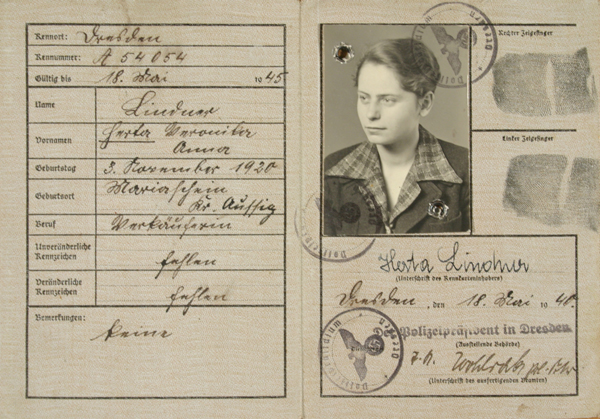 Kennort: Dresden
Kennummer: A 54054
Gültig bis 18. Mai 1945
Name Lindner
Vornamen Herta Veronika
Anna
Geburtstag 3. November 1920
Geburtsort Mariaschein
Kr. Aussig
Beruf Verkäuferin
Unveränderliche
Kennzeichen fehlen
Veränderliche
Kennzeichen fehlen
Bemerkungen: keine
Rechter Zeigefinger
Linker Zeigefinger
Herta Lindner
(Unterschrift des Kennkarteninhabers)
Dresden, den 18. Mai 1940.
Der Polizeipräsident in Dresden
(Ausstellende Behörde)
(Unterschrift des ausfertigenden Beamten)